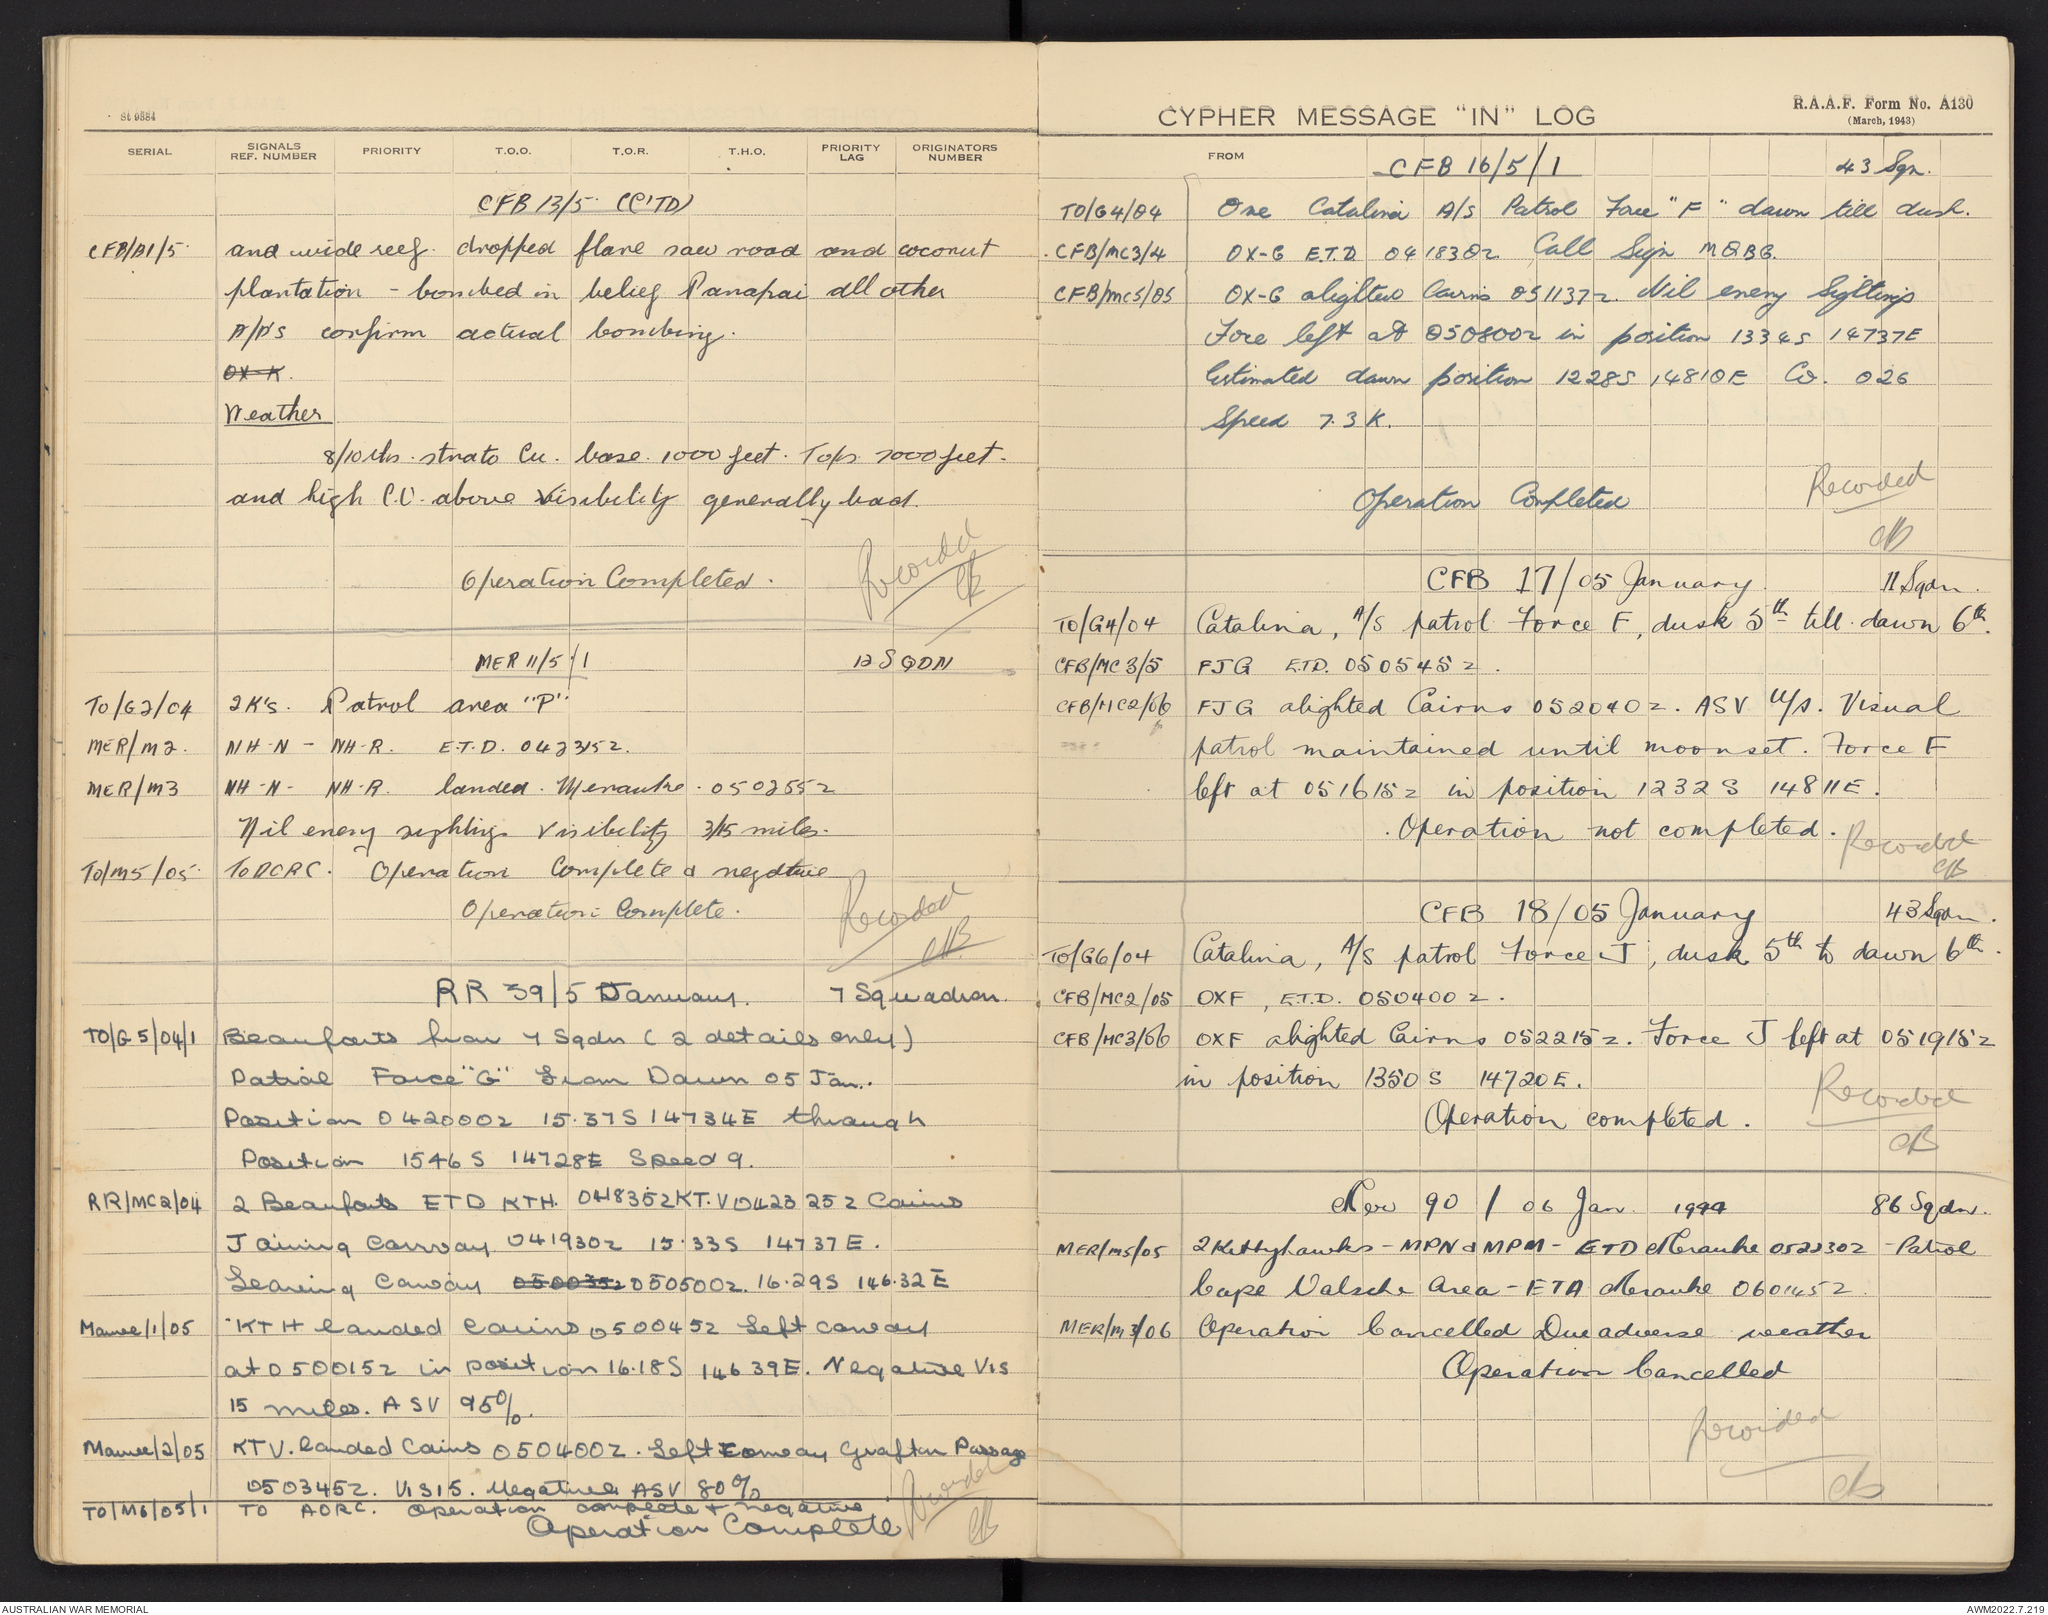 St 9884
SERIAL
SIGNALS REF. NUMBER
PRIORITY
T.O.O.
T.O.R.
T.H.O.
PRIORITY LAG
ORIGINATORS NUMBER
CFB 13/5 (C'TD)
CFB/A1/5 and wide reef. dropped flare saw road and coconut
plantation - bombed in belief Panapai all other
A/A's confirm actual bombing.
OX-K.
Weather
8/10ths. strato Cu. base. 1000 feet. Tops 7000 feet.
and high C.U. above visibility generally bad.
Operation Completed.
Recorded
CB
MER 11/5/1 12 SQDN
TO/G2/04 2K's. Patrol area "P"
MER/M2. NH-N - NH-R. E.T.D. 042315Z.
MER/M3 NH-N- NH-R. landed. Merauke. 050255Z
Nil enemy sightings visibility 3/15 miles.
TO/M5/05 To ACRC. Operation Complete & negative
Operation Complete.
Recorded
CHB
RR 39/5 January. 7 Squadron.
TO/G5/04/1 Beauforts from 7 Sqdn (2 details only)
Patrol Force "G" from Dawn 05 Jan.
Position 042000Z 15.37S 14734E through
Position 1546S 14728E Speed 9.
RR/MC2/04 2 Beauforts ETD KTH. 041835Z KT.V 042325Z Cairns
Joining Convoy 041930Z 15.33S 14737E.
Leaving Convoy 050035Z 050500Z. 16.29S 146.32E
Mawee/1/05 KTH landed Cairns 050045Z Left convoy
at 050015Z in position 16.18S 14639E. Negative Vis
15 miles. ASV 95%.
Mawee/2/05 KTV. landed Cairns 050400Z. Left Convoy Grafton Passage
050345Z. Vis 15. Negative ASV 80%
TO/M6/05/1 TO AORC. Operation complete & negative
Operation Complete
Recorded
CB
CYPHER MESSAGE "IN" LOG
R.A.A.F. Form No. A130
(March, 1943)
FROM
CFB 16/5/1 43 Sqn.
TO/G4/04 One Catalina A/S Patrol Force "F" dawn till dusk.
CFB/MC3/4 OX-G E.T.D. 041830Z. Call Sign MQBG.
CFB/MC5/05 OX-G alighted Cairns 051137Z. Nil enemy Sightings
Force left at 050800Z in position 1334S 14737E
Estimated dawn position 1228S 14810E Co. 026
Speed 7.3 K.
Operation Completed
Recorded
CB
CFB 17/05 January. 11 Sqdn.
TO/G4/04 Catalina, A/S patrol Force F, dusk 5th till dawn 6th.
CFB/MC3/5 FJG ETD. 050545Z.
CFB/MC2/06 FJG alighted Cairns 052040Z. ASV U/S. Visual
patrol maintained until moonset. Force F
left at 051615Z in position 1232S 14811E.
Operation not completed.
Recorded
CB
CFB 18/05 January 43 Sqdn.
TO/G6/04 Catalina, A/S patrol Force J, dusk 5th to dawn 6th.
CFB/MC2/05 OXF, E.T.D. 050400Z.
CFB/MC3/06 OXF alighted Cairns 052215Z. Force J left at 051915Z
in position 1350S 14720E.
Operation completed.
Recorded
CB
Mer 90 / 06 Jan. 1944 86 Sqdn.
MER/M5/05 2 Kittyhawks - MPN & MPM - ETD Merauke 052230Z - Patrol
Cape Valsche Area - ETA Merauke 060145Z
MER/M3/06 Operation Cancelled Due adverse weather
Operation Cancelled
Recorded
CB
AUSTRALIAN WAR MEMORIAL
AWM2022.7.219